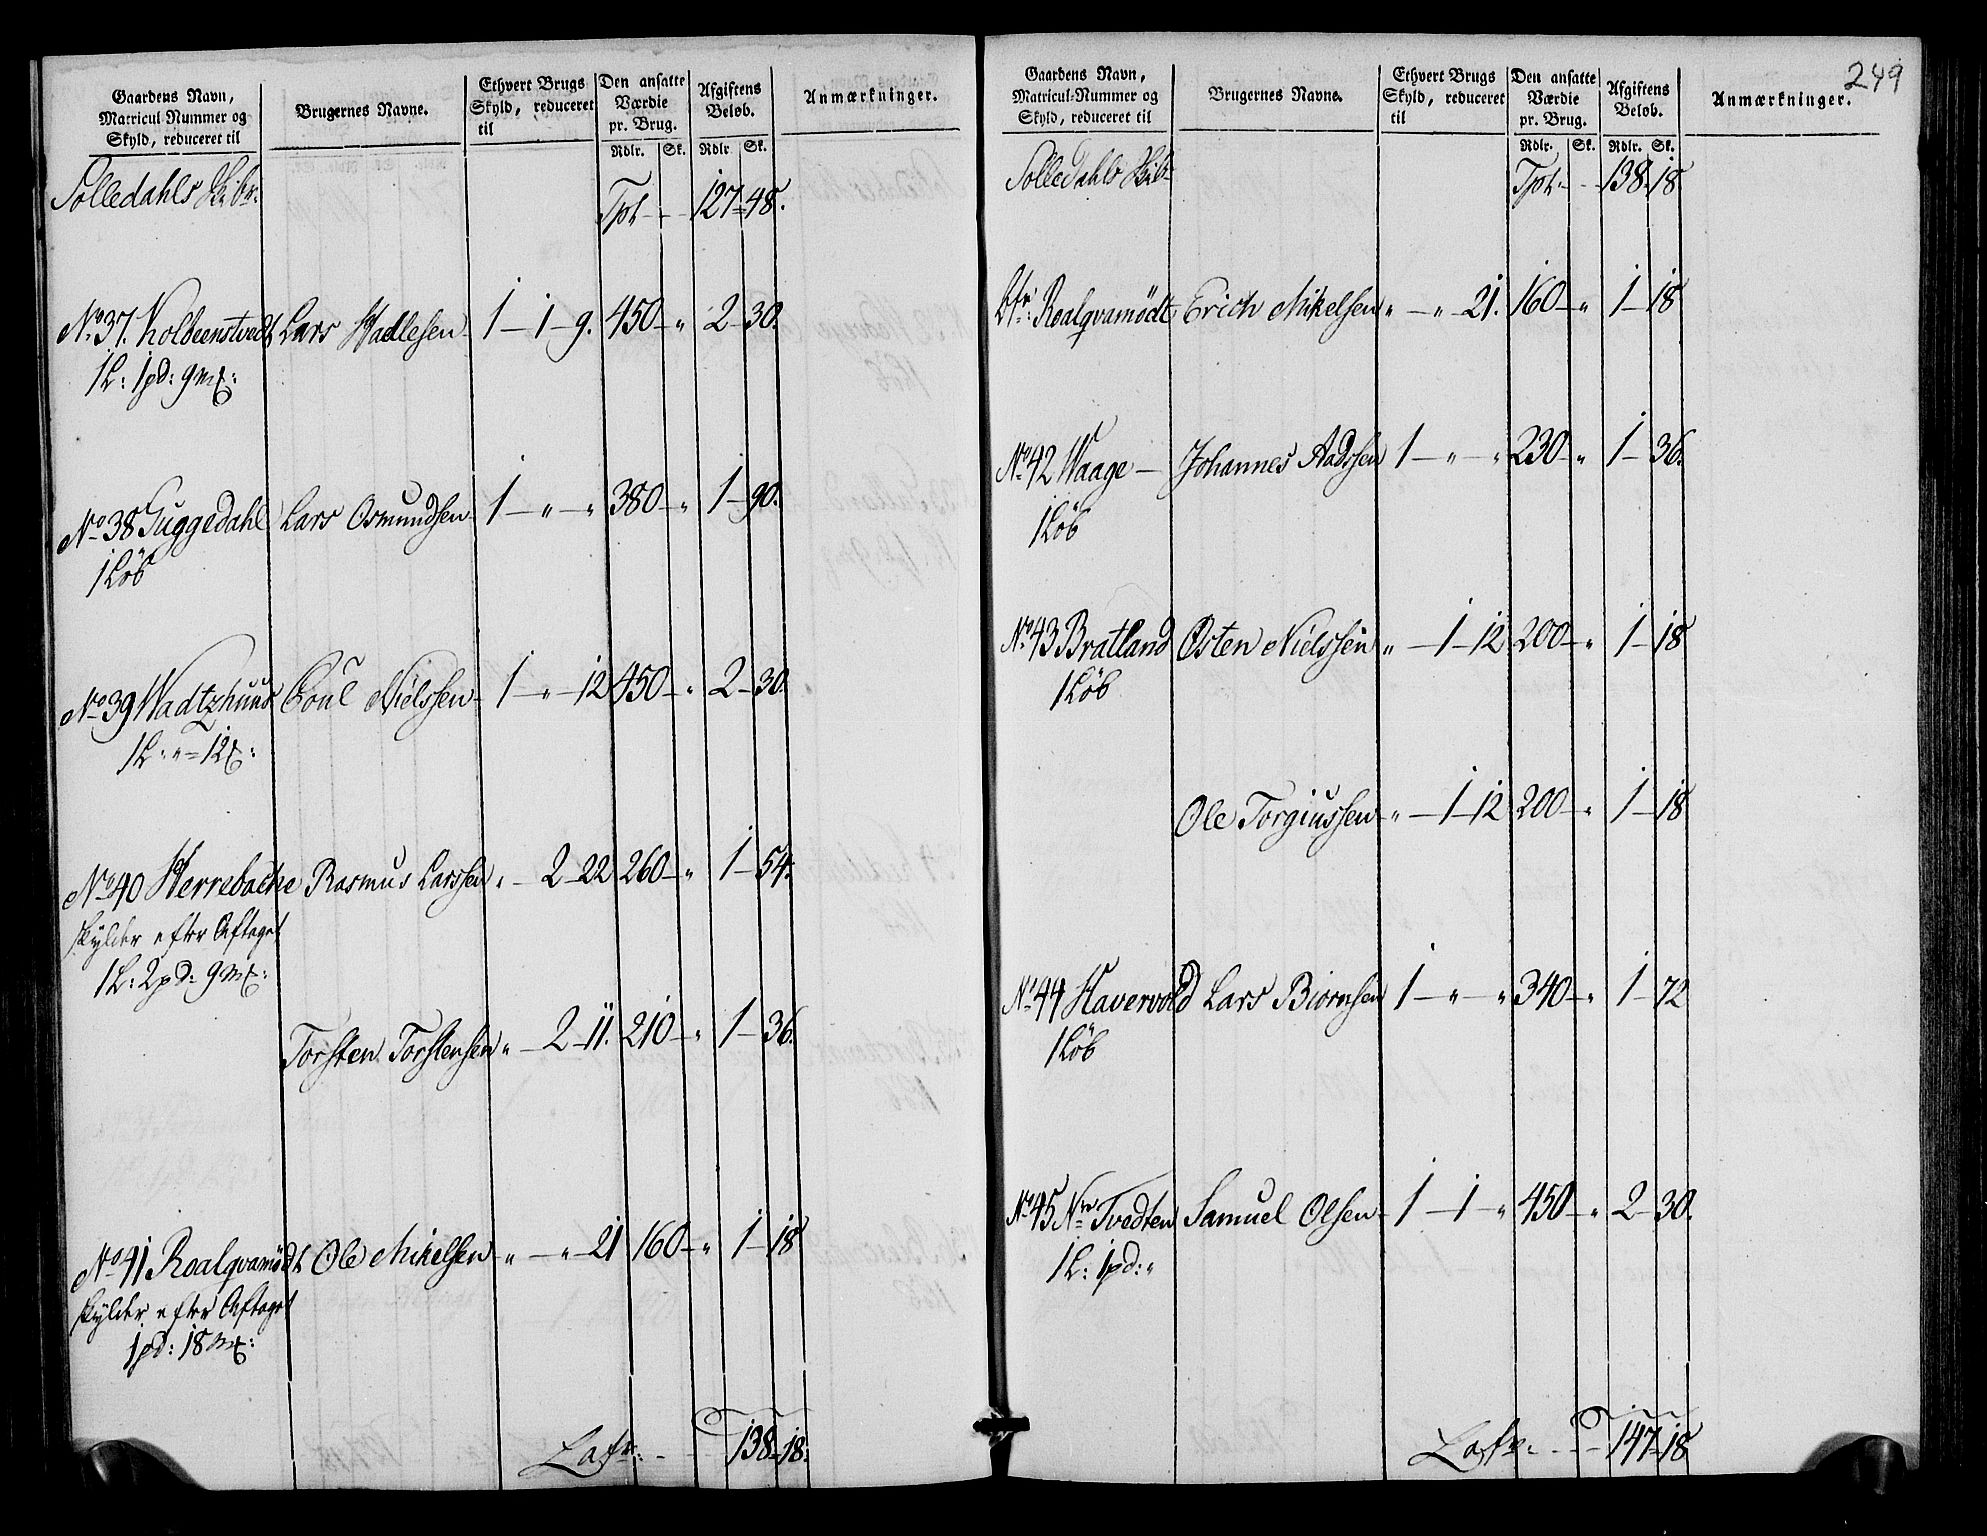 Gaardens Navn, Matricul-Nummer og Skyld, reduceret til
Brugernes Navne.
Ethvert Brugs Skyld, reduceret til
Den ansatte Værdie pr. Brug.
Rdlr. Sk.
Afgiftens Beløb.
Rdlr Sk.
Anmærkninger.
Solledahls Skibr:
Tpt - - 127 - 48.
No 37. Kolbeenstvedt Lars Hadlesen 1 - 1 - 9. 450 - „ 2 - 30.
1L: 1pd: 9mk:
No 38 Guggedahl Lars Osmundsen 1 - „ - „ 380 - „ 1 - 90.
1 Løb
No 39 Wadtzhuus Poul Nielssen 1 - „ - 12 450 - „ 2 - 30.
1L: „ = 12
No 40 Herrebache Rasmus Larssen „ - 2 - 22 260 - „ 1 - 54.
skylder efter Aftaget
1L: 2pd: 9mk:
Torsten Torstensen „ - 2 - 11. 210 - „ 1 - 36.
No 41 Roalqvamødt Ole Mikelsen „ - „ - 21 160 - „ 1 - 18
skylder efter Aftaget
1pd: 18mk:
Lafr: - - 138 - 18.
249
Gaardens Navn, Matricul-Nummer og Skyld, reduceret til
Brugernes Navne.
Ethvert Brugs Skyld, reduceret til
Den ansatte Værdie pr. Brug.
Rdlr. Sk.
Afgiftens Beløb.
Rdlr. Sk.
Anmærkninger.
Solledahls Skib
Tpt - - 138 - 18
Roalqvamødt Erich Mikelsen „ - „ - 21. 160 - „ 1 - 18
No 42 Waage - Johannes Aadssen 1 - „ - „ 230 - „ 1 - 36.
1 Løb
No 43 Bratland Østen Nielssen „ - 1 - 12 200 - „ 1 - 18
1 Løb
Ole Torgiussen „ - 1 - 12 200 - „ 1 - 18
No 44 Havervold Lars Biørnsen 1 - „ - „ 340 - „ 1 - 72
1 Løb
No 45 Nre Tvedten Samuel Olsen 1 - 1 - „ 450 - „ 2 - 30.
1L: 1pd: „
Lafr: - - 147 - 18